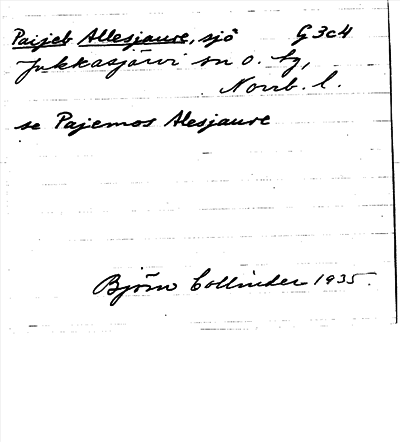 Paijeb Allesjaure, sjö G3c4
Jukkasjärvi sn o. tg,
Norrb. l.
se Pajemos Alesjaure
Björn Collinder 1935.